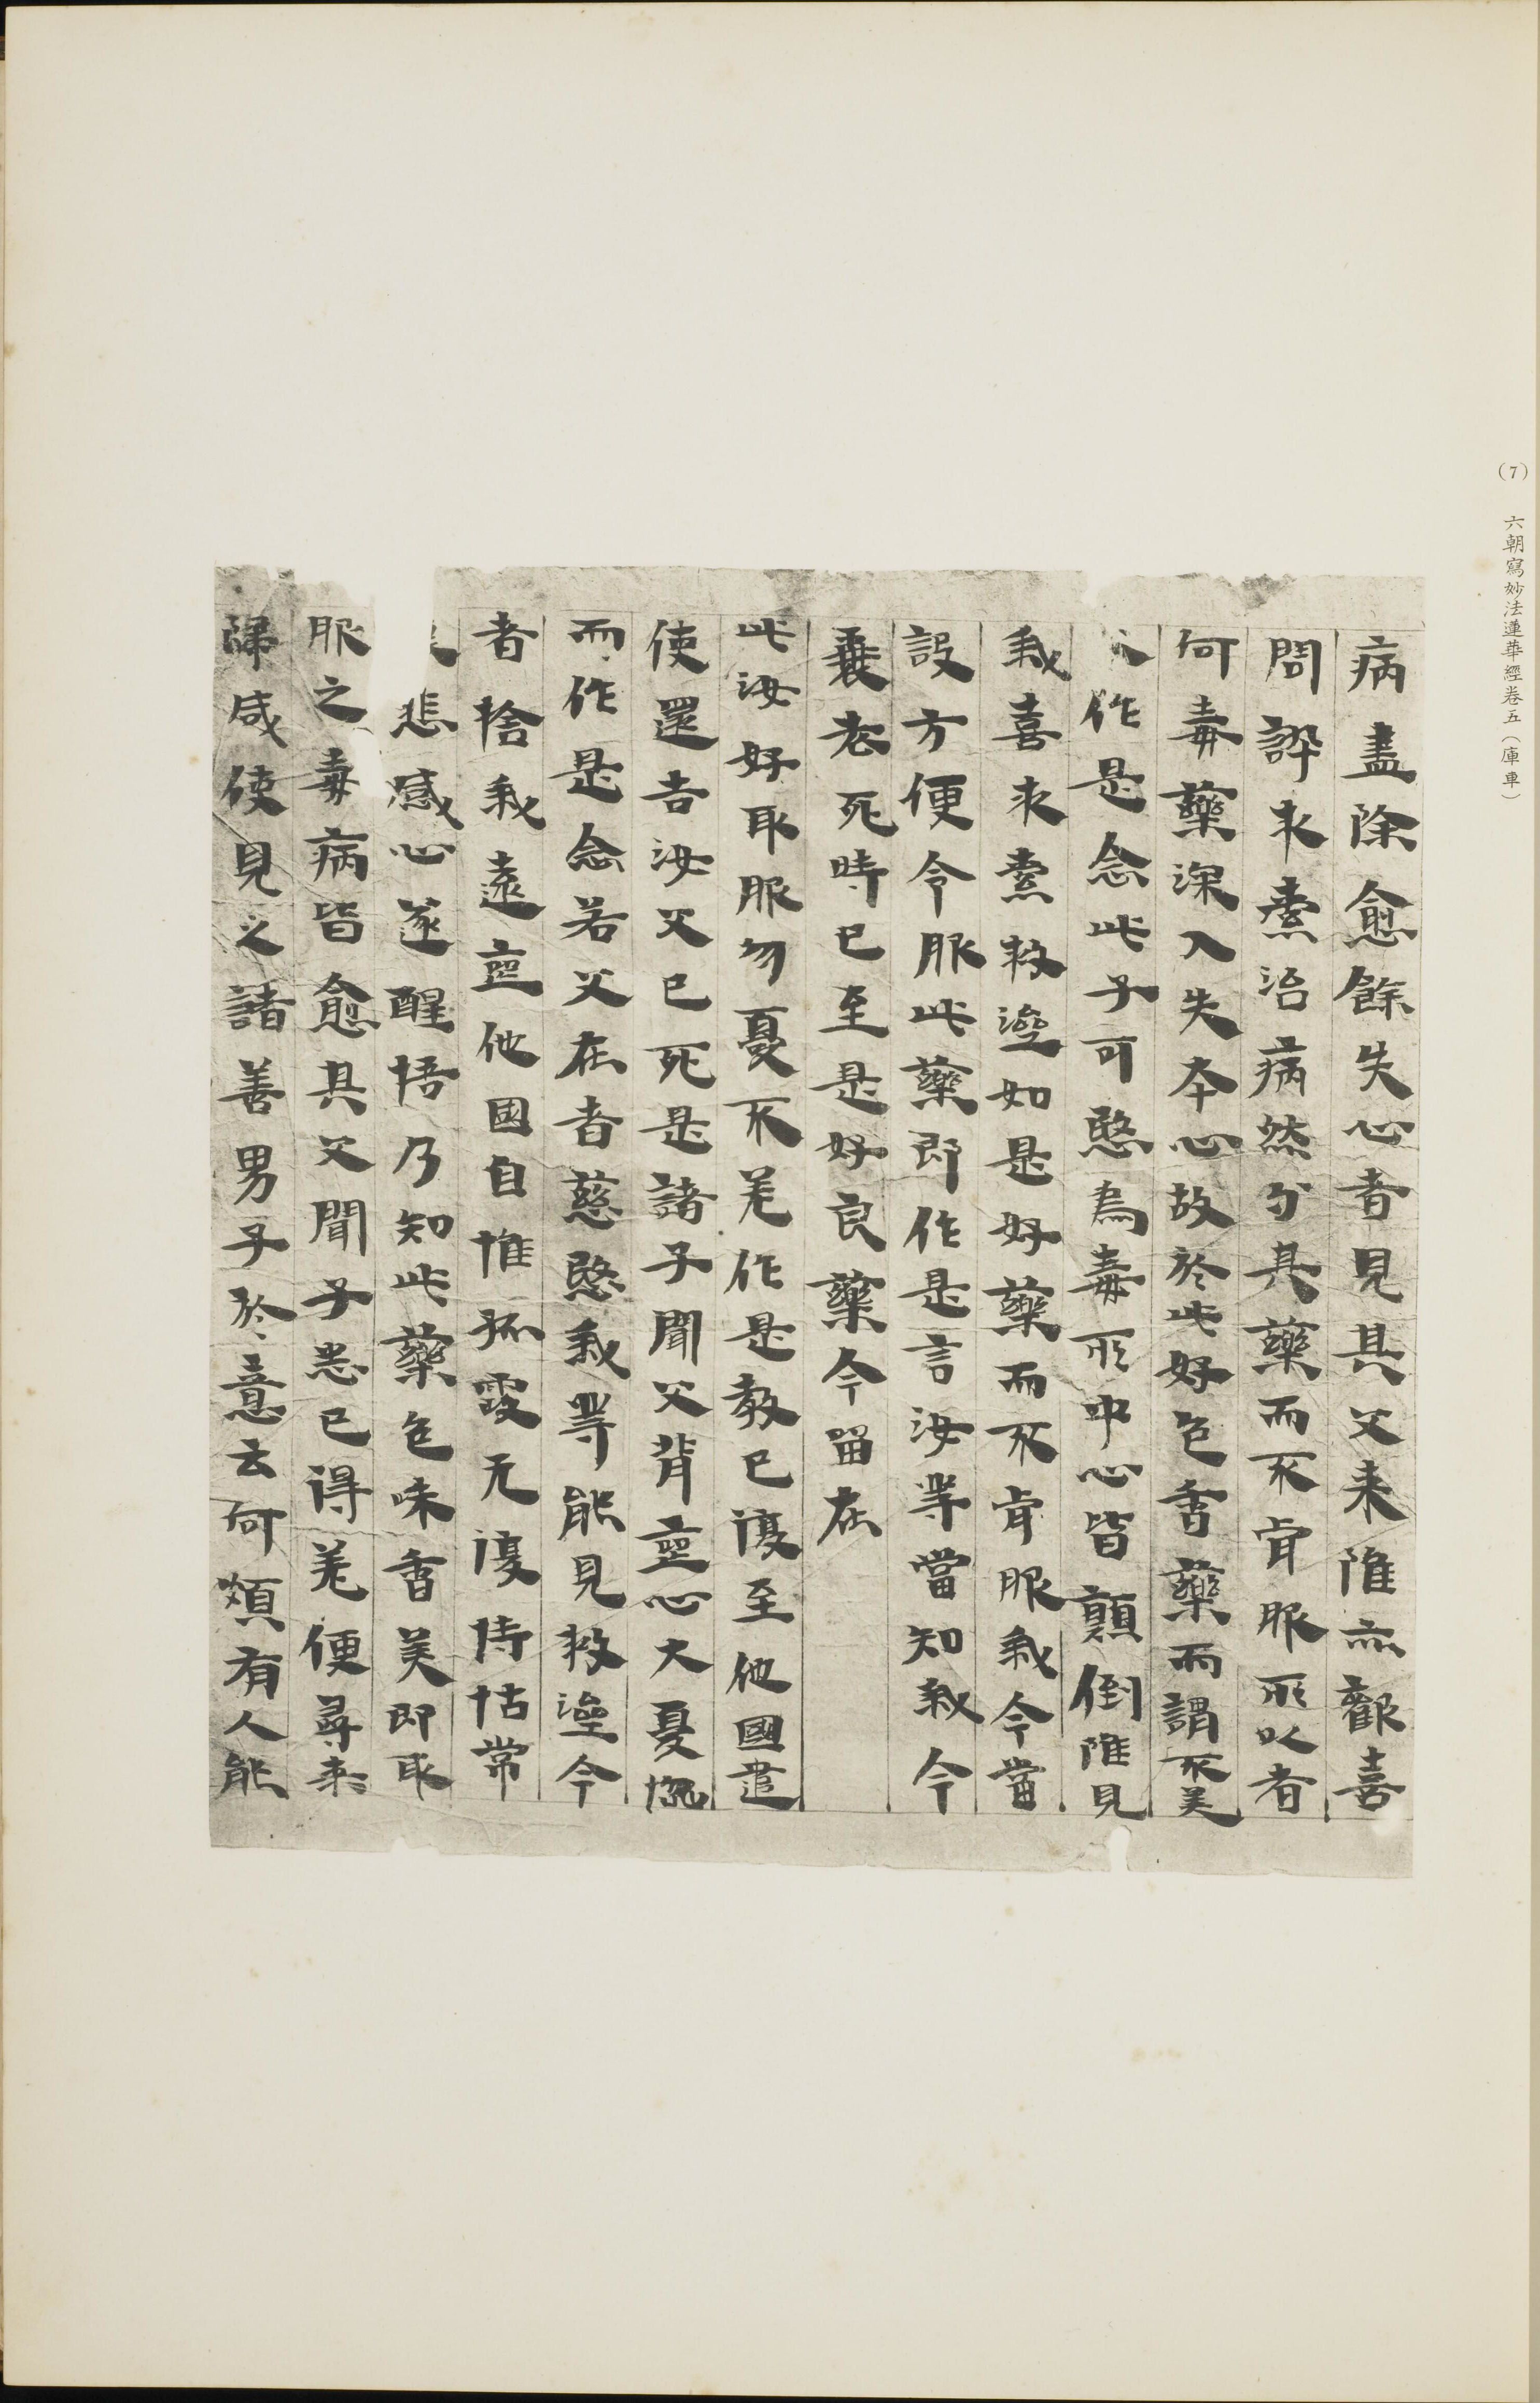 (7) 六朝寫妙法蓮華經卷五（庫車）
病盡除愈餘失心者見其父来雖亦歡喜
問訊求索治病然与其藥而不肯服所以者
何毒藥深入失本心故於此好色香藥而謂不美
作是念此子可愍為毒所中心皆顛倒雖見
我喜求索救療如是好藥而不肯服我今當
設方便令服此藥即作是言汝等當知我今
衰老死時已至是好良藥今留在
此汝好取服勿憂不差作是教已復至他國遣
使還告汝父已死是諸子聞父背喪心大憂惱
而作是念若父在者慈愍我等能見救療今
者捨我遠喪他國自惟孤露无復恃怙常
悲感心遂醒悟乃知此藥色味香美即取
服之毒病皆愈其父聞子悉已得差便尋来
歸咸使見之諸善男子於意云何頗有人能